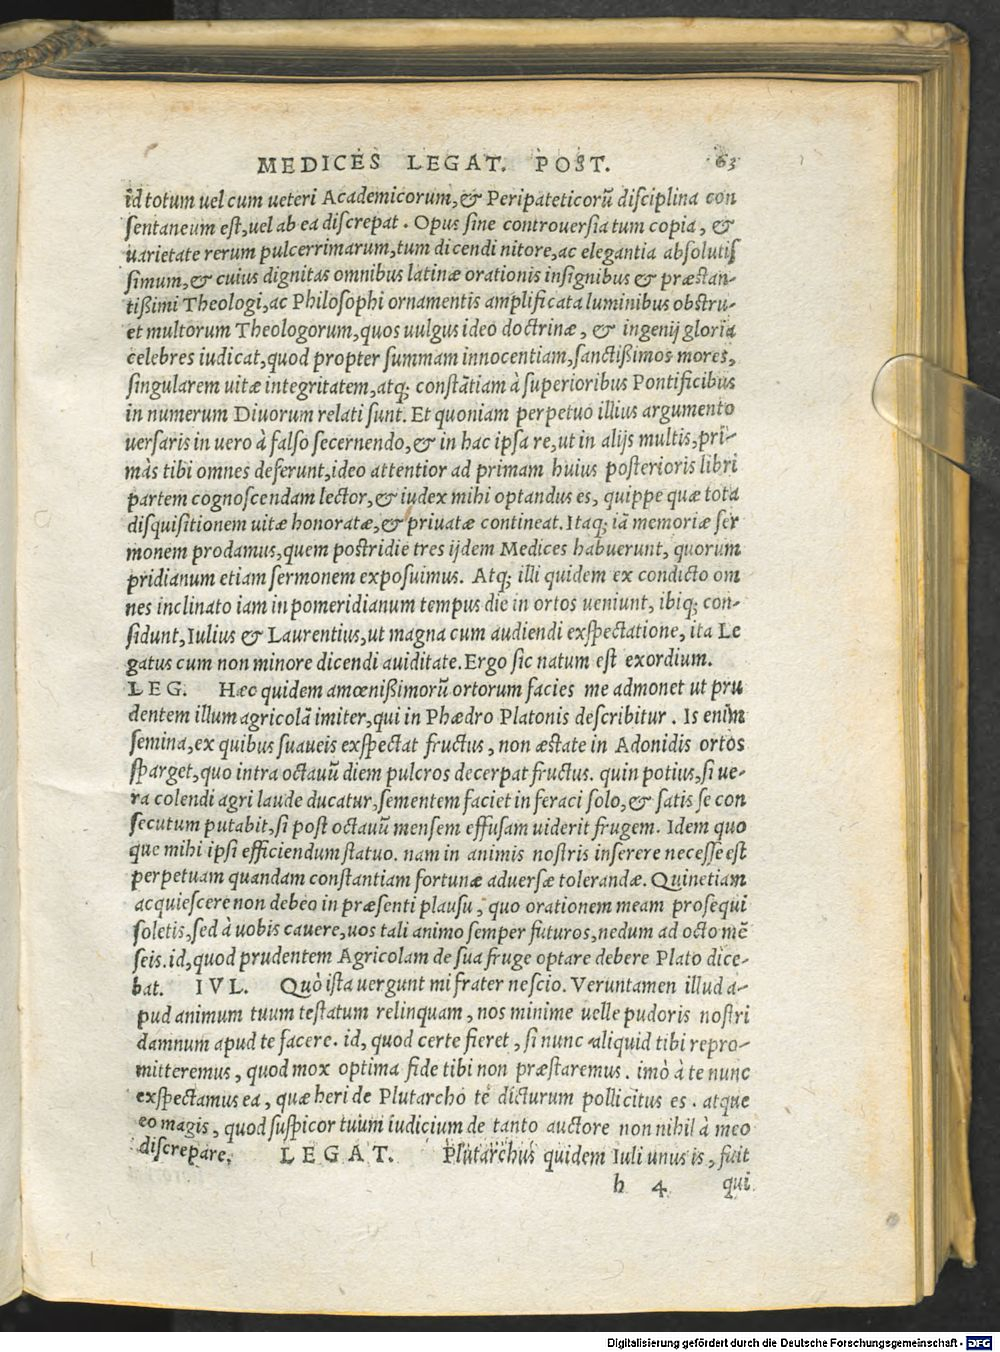 MEDICES LEGAT. POST. 63
id totum uel cum ueteri Academicorum, & Peripateticorũ disciplina con
sentaneum est, uel ab ea discrepat. Opus sine controuersia tum copia, &
uarietate rerum pulcerrimarum, tum dicendi nitore, ac elegantia absolutis
simum, & cuius dignitas omnibus latinæ orationis insignibus & præstan-
tißimi Theologi, ac Philosophi ornamentis amplificata luminibus obstru-
et multorum Theologorum, quos uulgus ideo doctrinæ, & ingenij gloria
celebres iudicat, quod propter summam innocentiam, sanctißimos mores,
singularem uitæ integritatem, atq; constãtiam à superioribus Pontificibus
in numerum Diuorum relati sunt. Et quoniam perpetuo illius argumento
uersaris in uero à falso secernendo, & in hac ipsa re, ut in alijs multis, pri-
màs tibi omnes deferunt, ideo attentior ad primam huius posterioris libri
partem cognoscendam lector, & iudex mihi optandus es, quippe quæ tota
disquisitionem uitæ honoratæ, & priuatæ contineat. Itaq; iã memoriæ ser
monem prodamus, quem postridie tres ijdem Medices habuerunt, quorum
pridianum etiam sermonem exposuimus. Atq; illi quidem ex condicto om
nes inclinato iam in pomeridianum tempus die in ortos ueniunt, ibiq; con-
sidunt, Iulius & Laurentius, ut magna cum audiendi exspectatione, ita Le
gatus cum non minore dicendi auiditate. Ergo sic natum est exordium.
LEG. Hæc quidem amœnißimorũ ortorum facies me admonet ut pru
dentem illum agricolã imiter, qui in Phædro Platonis describitur. Is enim
semina, ex quibus suaueis exspectat fructus, non æstate in Adonidis ortos
sparget, quo intra octauũ diem pulcros decerpat fructus. quin potius, si ue-
ra colendi agri laude ducatur, sementem faciet in feraci solo, & satis se con
secutum putabit, si post octauũ mensem effusam uiderit frugem. Idem quo
que mihi ipsi efficiendum statuo. nam in animis nostris inserere necesse est
perpetuam quandam constantiam fortunæ aduersæ tolerandæ. Quinetiam
acquiescere non debeo in præsenti plausu, quo orationem meam prosequi
soletis, sed à uobis cauere, uos tali animo semper futuros, nedum ad octo mẽ
seis. id, quod prudentem Agricolam de sua fruge optare debere Plato dice-
bat. IVL. Quò ista uergunt mi frater nescio. Veruntamen illud a-
pud animum tuum testatum relinquam, nos minime uelle pudoris nostri
damnum apud te facere. id, quod certe fieret, si nunc aliquid tibi repro-
mitteremus, quod mox optima fide tibi non præstaremus. imò à te nunc
exspectamus ea, quæ heri de Plutarcho te dicturum pollicitus es. atque
eo magis, quod suspicor tuum iudicium de tanto auctore non nihil à meo
discrepare. LEGAT. Plutarchus quidem Iuli unus is, fuit
h 4 qui
Digitalisierung gefördert durch die Deutsche Forschungsgemeinschaft - DFG